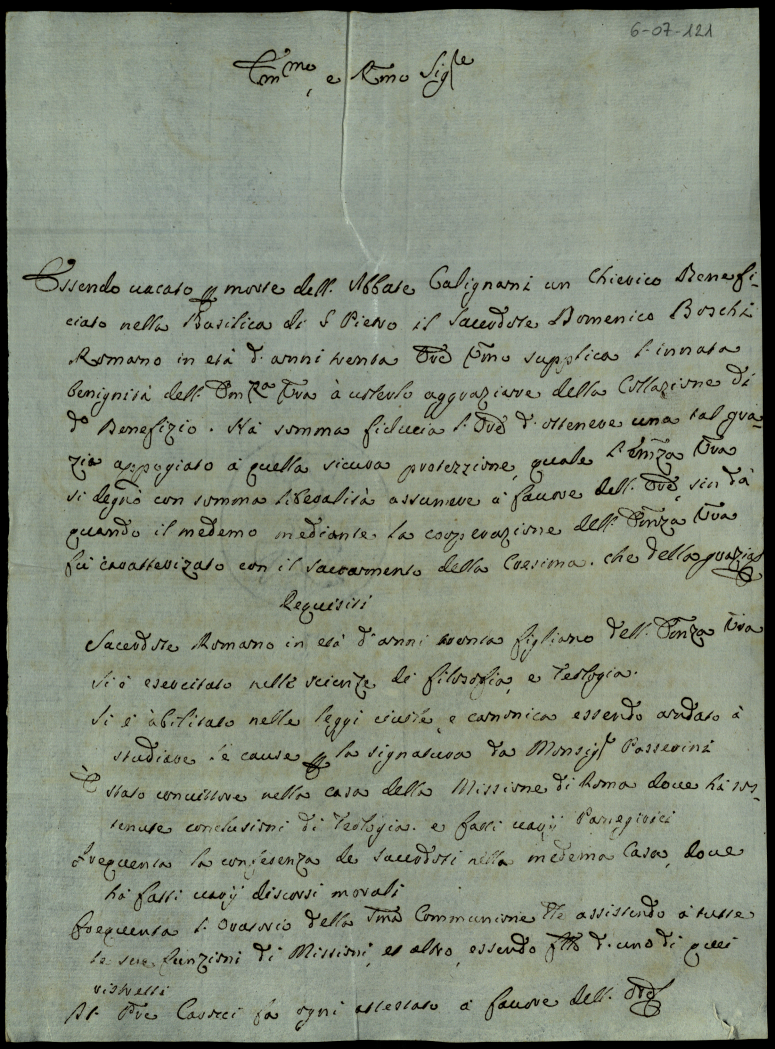 6-07-121
Em̃mo, e Rm̃o Sigre
Essendo vacato per morte dell. Abbate Calignani un Chierico Benefi-
ciato nella Basilica di S Pietro il Sacerdote Domenico Boschi
Romano in età d'anni trenta Ore Umo supplica l'innata
benignità dell. Em̃za Vra à volerlo aggraziare della Collazione di
do Benefizio. Hà somma fiducia l'Ore d'ottenere una tal gra-
zia appogiato à quella sicura protezzione, quale l'Em̃za Vra
si degnò con somma liberalità assumere à favore dell. Ore, sin dà
quando il medemo mediante la cooperazione dell. Em̃za Vra
fù caratterizato con il sacramento della Cresima. che della grazia
Requisiti
Sacerdote Romano in età d'anni trenta figliano dell. Em̃za Vra
Si è esercitato nelle scienze di filosofia, e Teologia.
Si è abilitato nelle leggi civile, e canonica essendo andato à
studiare le cause per la signatura da Monsigr Passerini
È stato convittore nella casa della Missione di Roma dove hà sos-
tenute conclusioni di Teologia. e fatti varij Panegirici
Frequenta la conferenza de Sacerdoti nella medema Casa, dove
hà fatti varij discorsi morali
frequenta l. Oratorio della Communione assistendo à tutte
le sue funzioni di Missioni, et altro, essendo d. uno di quei
ristretti
Il Pre Caracci fà ogni attestato à favore dell. Ore